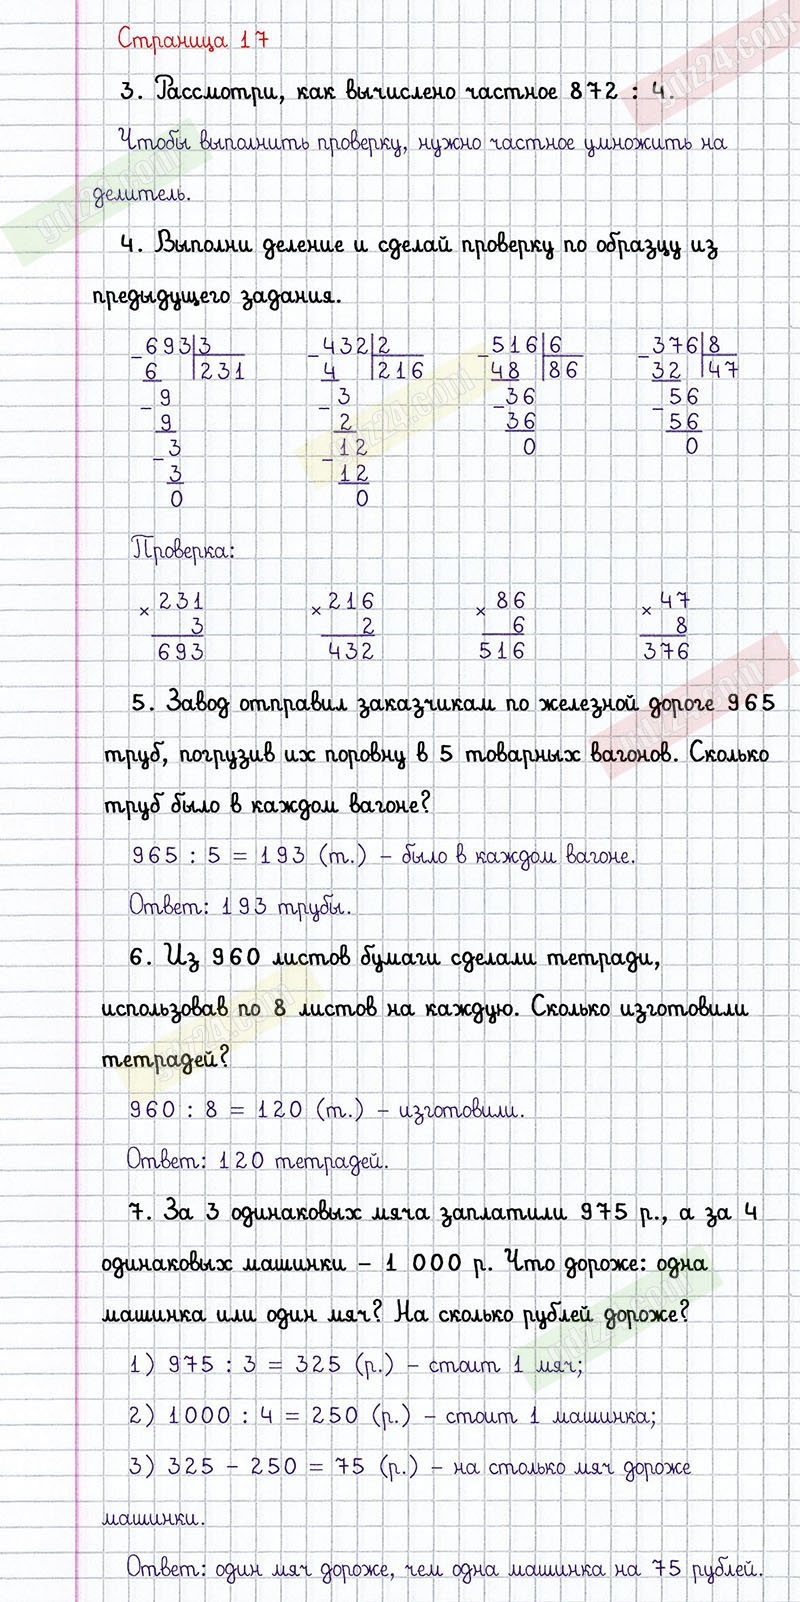 Страница 17
3. Рассмотри, как вычислено частное 872 : 4.
Чтобы выполнить проверку, нужно частное умножить на
делитель.
4. Выполни деление и сделай проверку по образцу из
предыдущего задания.
-693|3 -432|2 -516|6 -376|8
6 |231 4 |216 48 |86 32 |47
-9 -3 -36 -56
9 2 36 56
-3 -12 0 0
3 12
0 0
Проверка:
×231 ×216 ×86 ×47
3 2 6 8
693 432 516 376
5. Завод отправил заказчикам по железной дороге 965
труб, погрузив их поровну в 5 товарных вагонов. Сколько
труб было в каждом вагоне?
965 : 5 = 193 (т.) – было в каждом вагоне.
Ответ: 193 трубы.
6. Из 960 листов бумаги сделали тетради,
использовав по 8 листов на каждую. Сколько изготовили
тетрадей?
960 : 8 = 120 (т.) – изготовили.
Ответ: 120 тетрадей.
7. За 3 одинаковых мяча заплатили 975 р., а за 4
одинаковых машинки – 1 000 р. Что дороже: одна
машинка или один мяч? На сколько рублей дороже?
1) 975 : 3 = 325 (р.) – стоит 1 мяч;
2) 1000 : 4 = 250 (р.) – стоит 1 машинка;
3) 325 – 250 = 75 (р.) – на столько мяч дороже
машинки.
Ответ: один мяч дороже, чем одна машинка на 75 рублей.
gdz24.com
gdz24.com
gdz24.com
gdz24.com
gdz24.com
gdz24.com